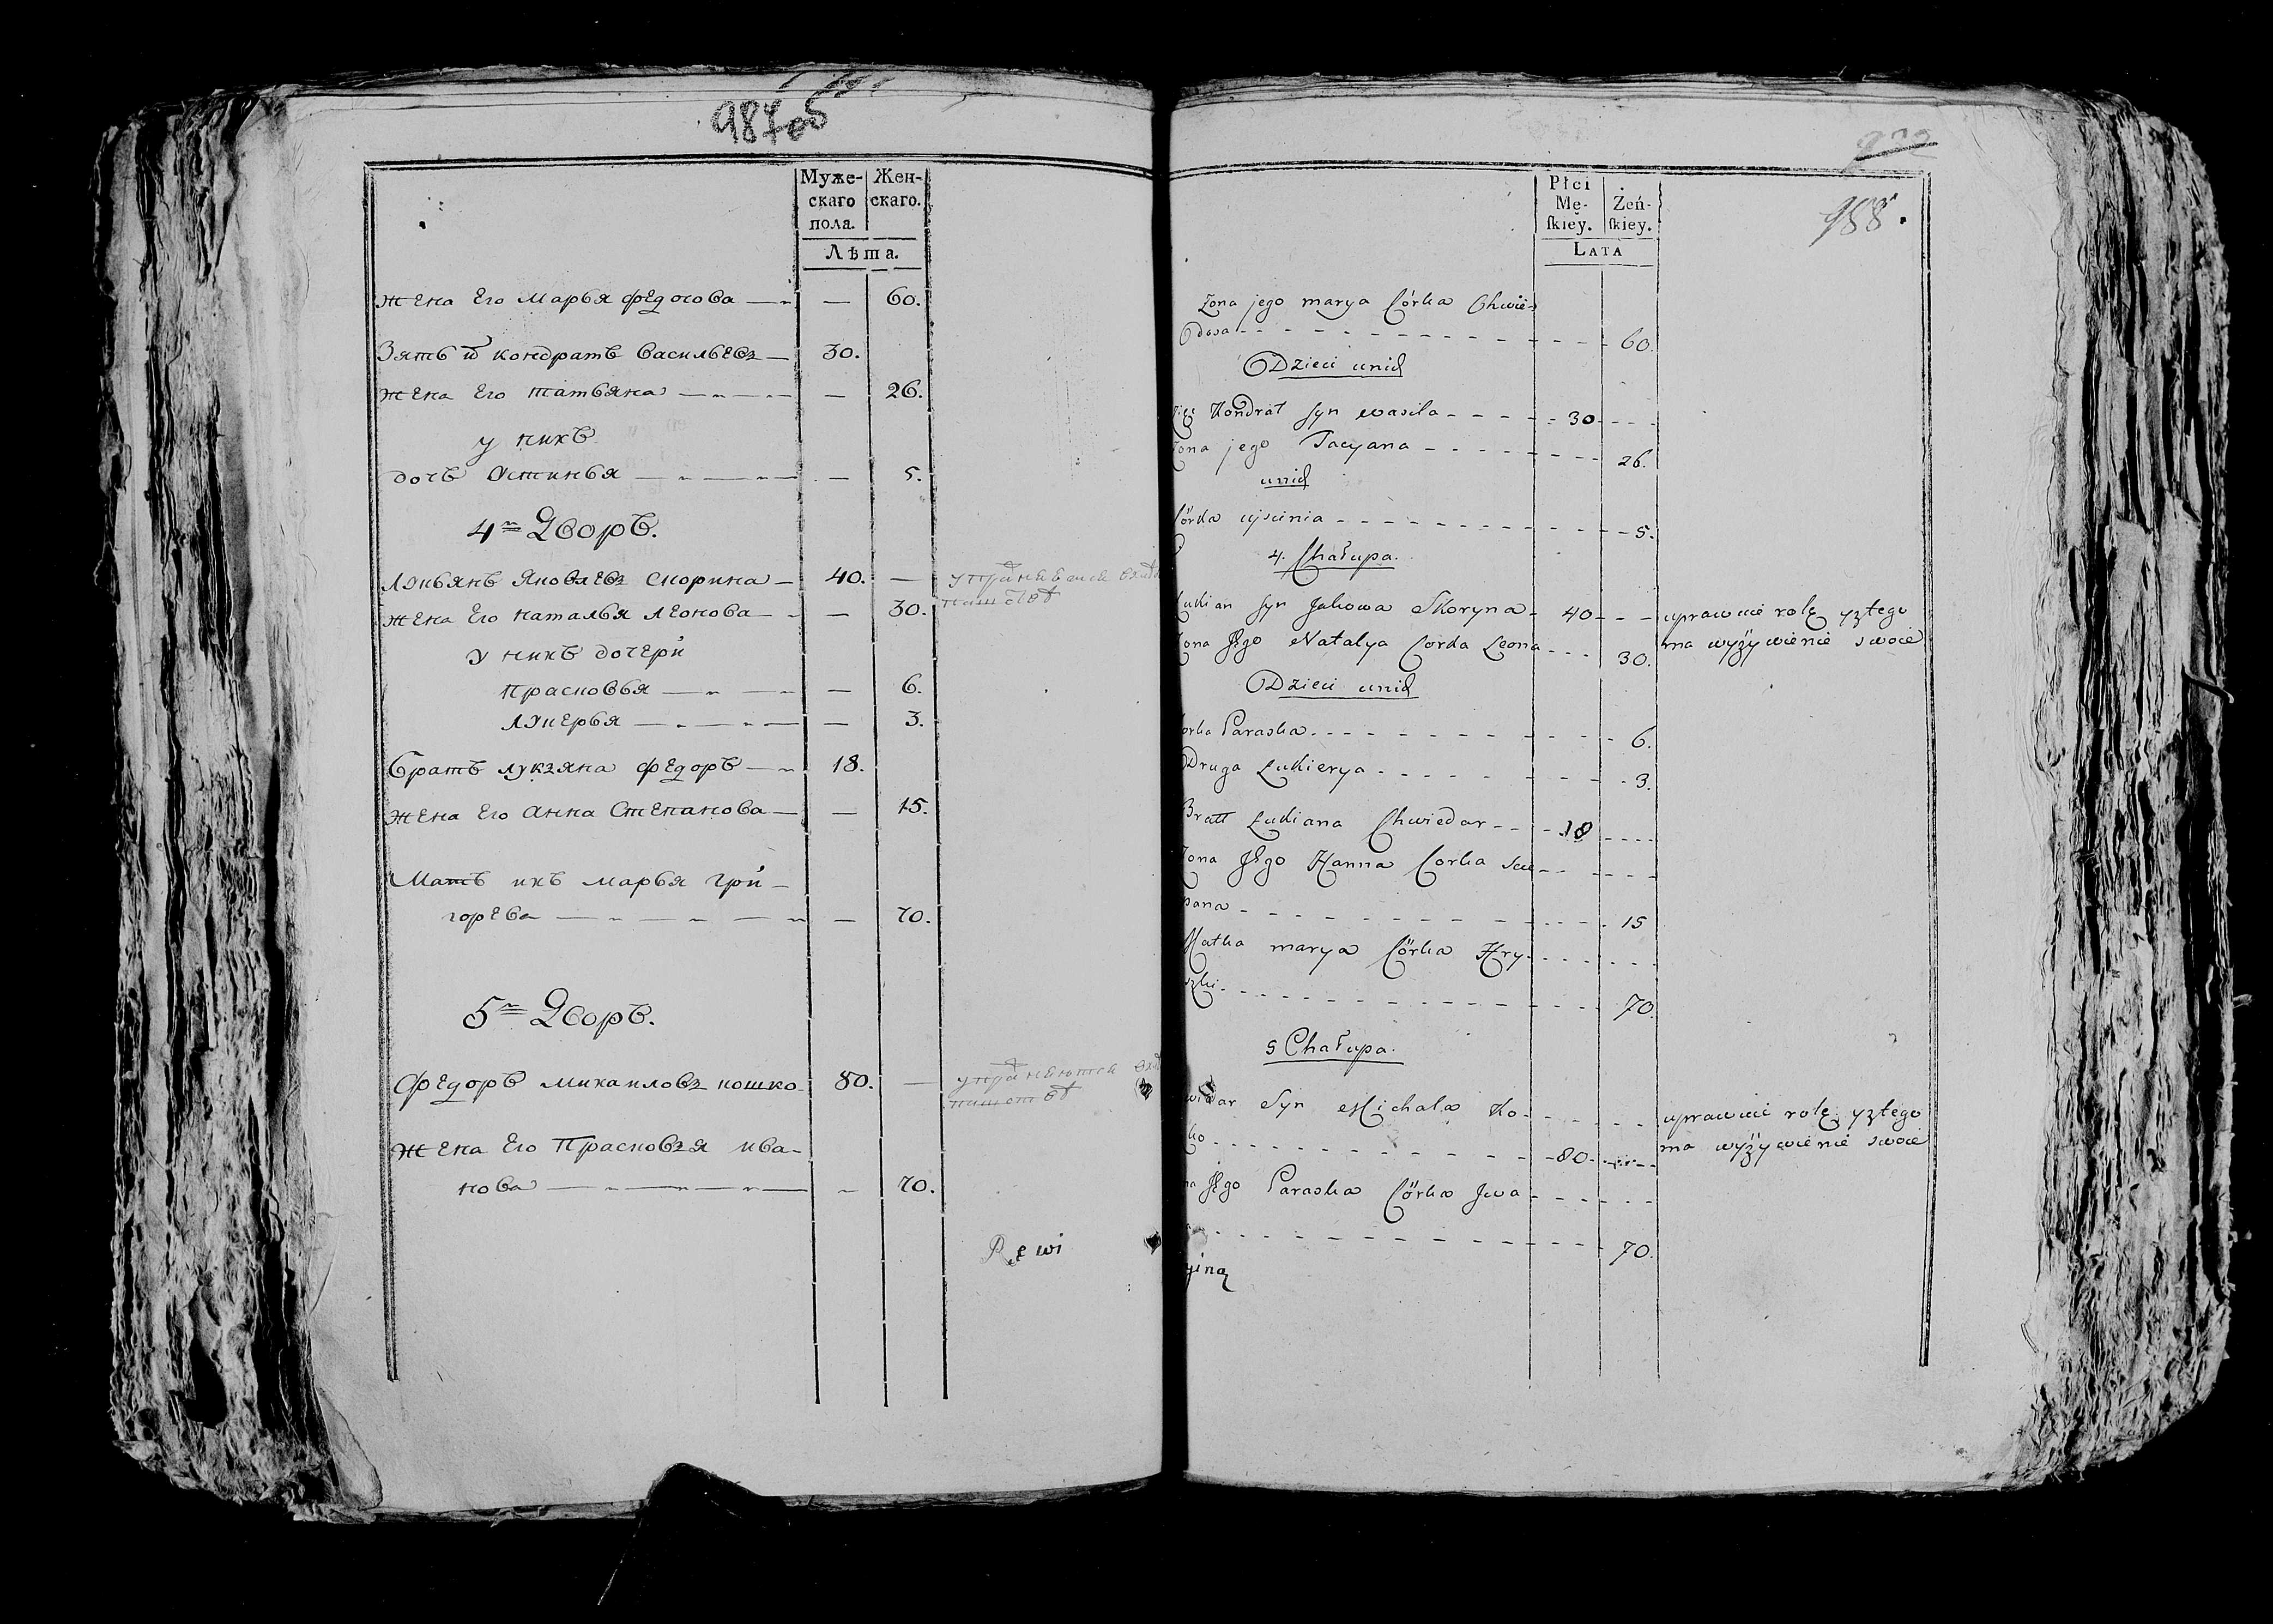 987об
Муже-
скаго
пола.
Жен-
скаго.
Лѣта.
Жена Его Марья Федосова — 60.
Зять Кондратъ Васильевъ — 30.
Жена Его Татьяна — 26.
у нихъ
дочь Остинья — 5.
4й Дворъ.
Лукьянъ Яковлевъ Скорина — 40. —
Жена Его Наталья Леонова — 30.
у нихъ дочери
Прасковья — 6.
Лукерья — 3.
Братъ Лукъяна Федоръ — 18.
Жена Его Анна Степанова — 15.
Мать ихъ Марья Гри-
горева — 70.
5й Дворъ.
Федоръ Михаиловъ Кошко 80. —
Жена Его Прасковъя Ива-
нова — 70.
Rewi
988.
Płci
Mę-
ſkiey.
Żeń-
ſkiey.
LATA
Żona jego marya Córka Chwie-
dosa - - - 60.
Dzieci unich
Kondrat syn wasila - - - 30 - - -
żona jego Tacyana - - - 26.
unich
Córka ujscinia - - - 5.
4. Chałupa.
Łukian syn Jakowa Skoryna - 40 - - uprawuie rolę yztego
Żona Jego Natalya Corka Leona - - - 30. ma wyżywienie swoie
Dzieci unich
Corka Paraska - - - 6.
Druga Łukierya - - - 3.
Bratt Łukiana Chwiedar - - - 18 - - -
Żona Jego Hanna Corka Scie- - - -
pana - - - 15
Matka marya Córka Hry- - - -
szki - - - 70.
5 Chałupa.
Syn Michała Ko- - - - uprawuie rolę yztego
- - - 80 - - - ma wyżywienie swoie
Jego Paraska Córka Iwa - - -
- - - 70.
yina